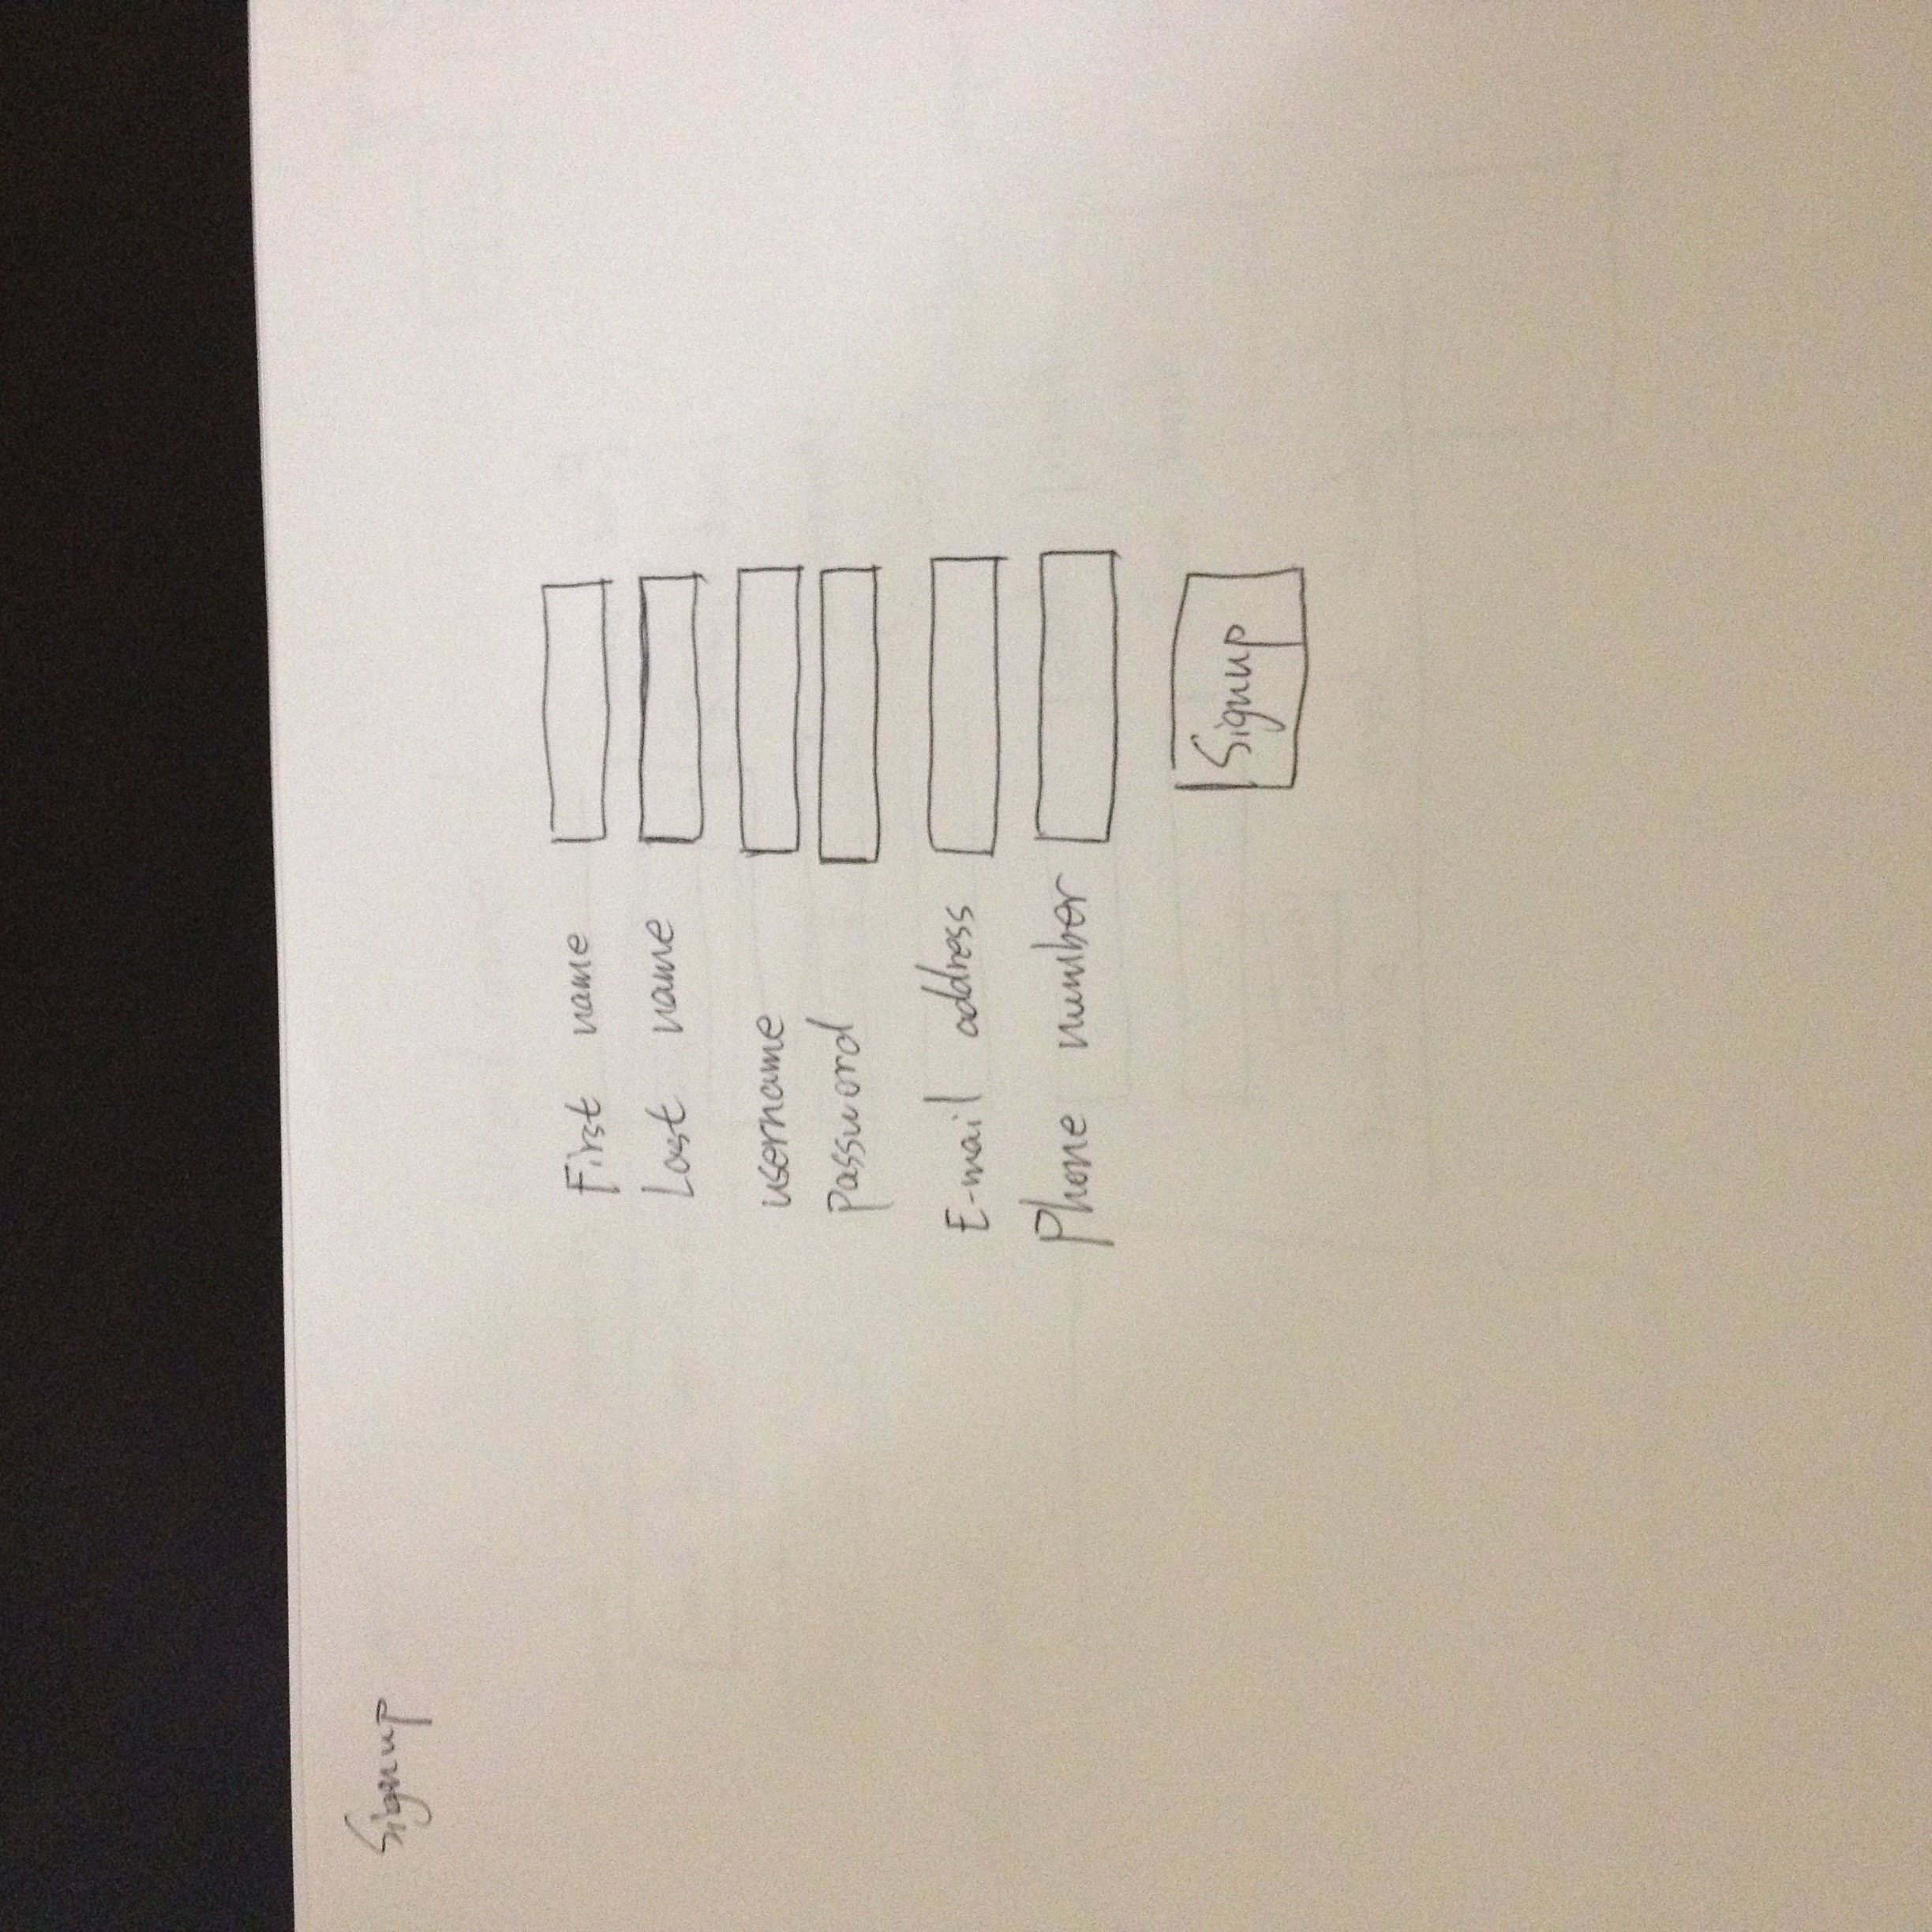 Signup
First name
Last name
username
password
E-mail address
Phone number
Signup